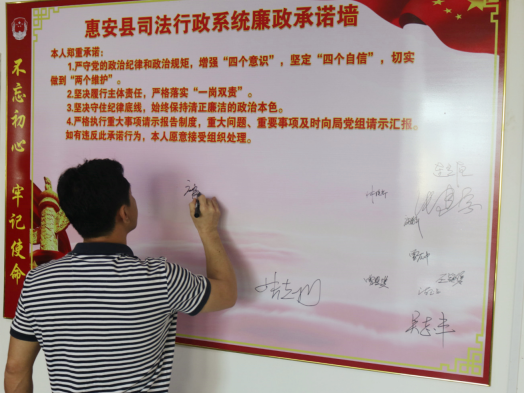 惠安县司法行政系统廉政承诺墙
本人郑重承诺：
1.严守党的政治纪律和政治规矩，增强“四个意识”，坚定“四个自信”，切实
做到“两个维护”。
2.坚决履行主体责任，严格落实“一岗双责”。
3.坚决守住纪律底线，始终保持清正廉洁的政治本色。
4.严格执行重大事项请示报告制度，重大问题、重要事项及时向局党组请示汇报。
如有违反此承诺行为，本人愿意接受组织处理。
不忘初心 牢记使命